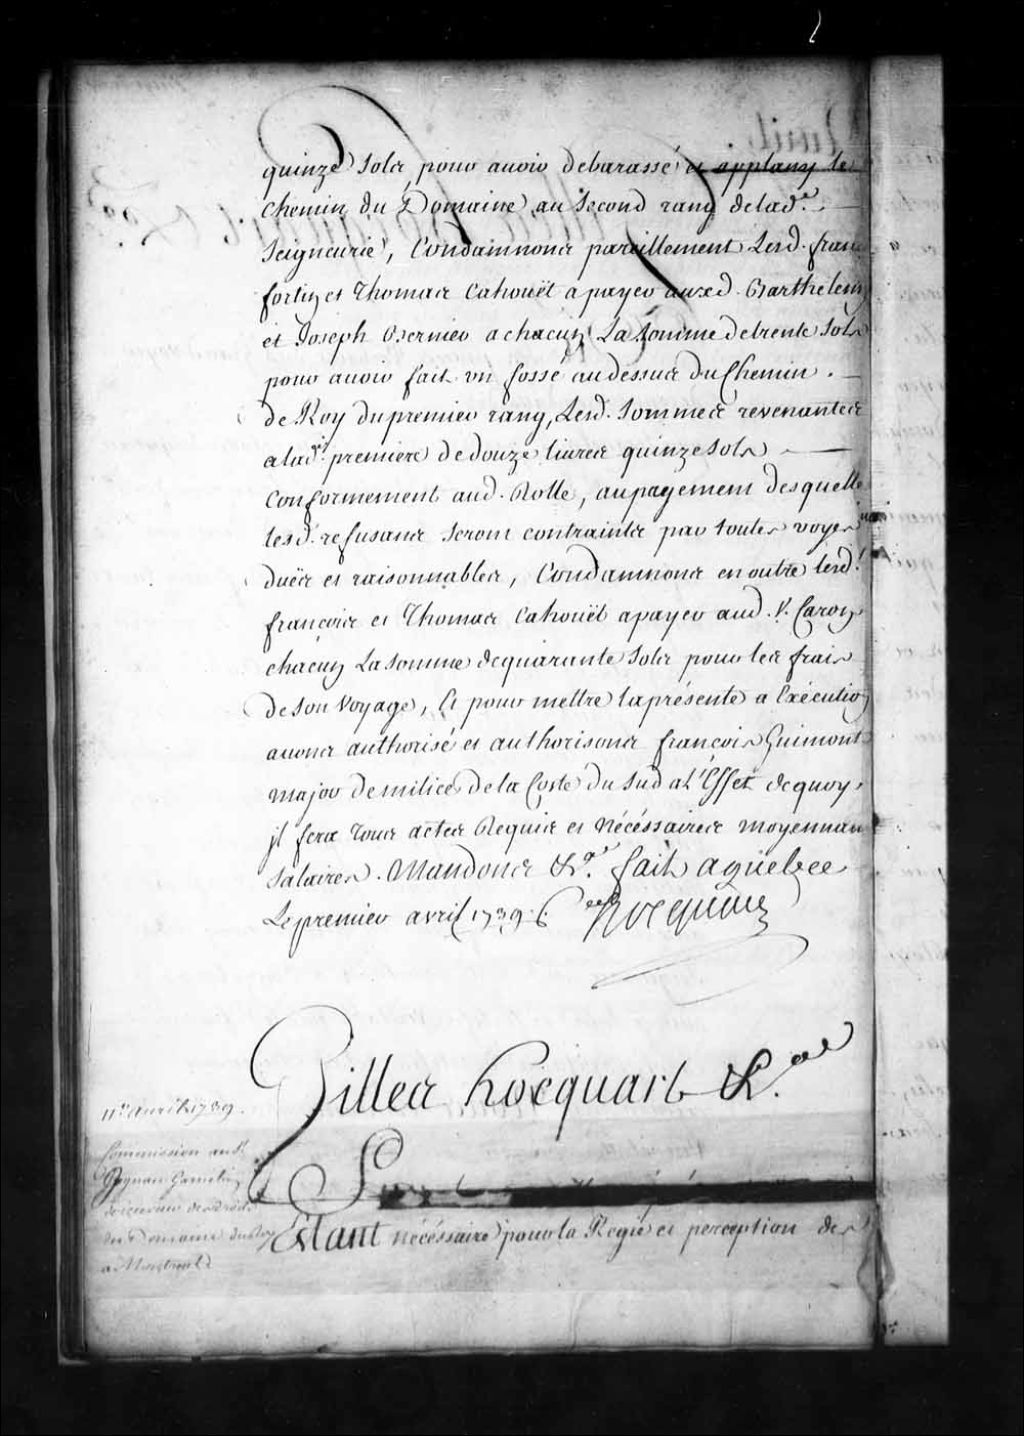 quinze Sols pour avoir debarassé et applany le
Chemin du Domaine au Second rang de lad.e
Seigneurie, Condamnons pareillement Lesd. fran
fortin et Thomas Cahouët a payer auxd. Barthelemy
et Joseph Bernier a chacun La Somme de trente Sols
pour avoir fait un fossé au dessus du Chemin
de Roy du premier rang, Lesd. Sommes revenantes
a lad. premiere de douze livres quinze Sols
Conformement aud. Rolle, au payement desquelle
lesd. refusans Seront contraints par toutes voyes
duës et raisonnables, Condamnons en outre lesd.
françois et Thomas Cahouët a payer aud. V. Caron
chacun La Somme de quarante Sols pour les frais
de Son Voyage, Et pour mettre la présente a Exécution
avons authorisé et authorisons françois Guimont
major de milice de la Coste du Sud a L'Effet de quoy
il fera Tous actes Requis et Nécéssaires moyennan
Salaires. Mandons &.a fait a québec
Le premier avril 1739.
Hocquart
Gilles hocquart &.a
11e avril 1739.
Commission au Sr
Ignace Gamelin
Receveur des droits
du Domaine du Roy
a Montreal
Etant nécéssaire pour la Regie et perception des